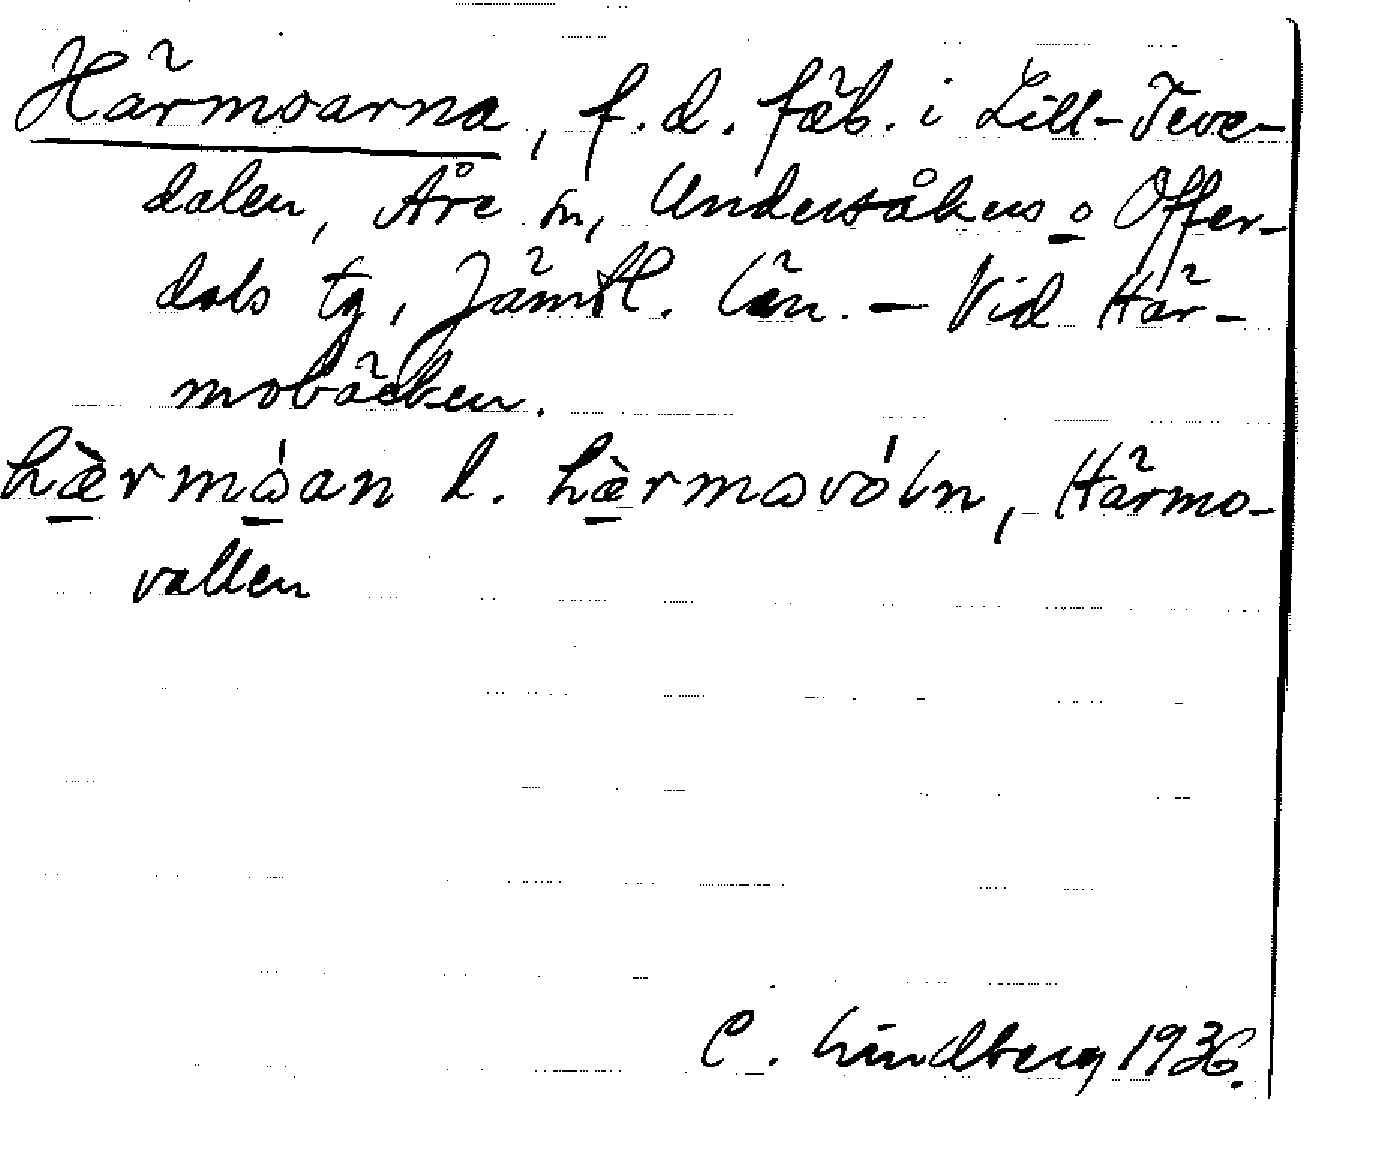 Härmoarna, f. d. fäb. i Lill-Teve-
dalen, Åre sn, Undersåkers o Offer-
dals tg, Jämtl. län. — Vid Här-
mobäcken.
hæ̀rmåan l. hæ̀rmovóln, Härmo-
vallen
C. Lindberg 1936.